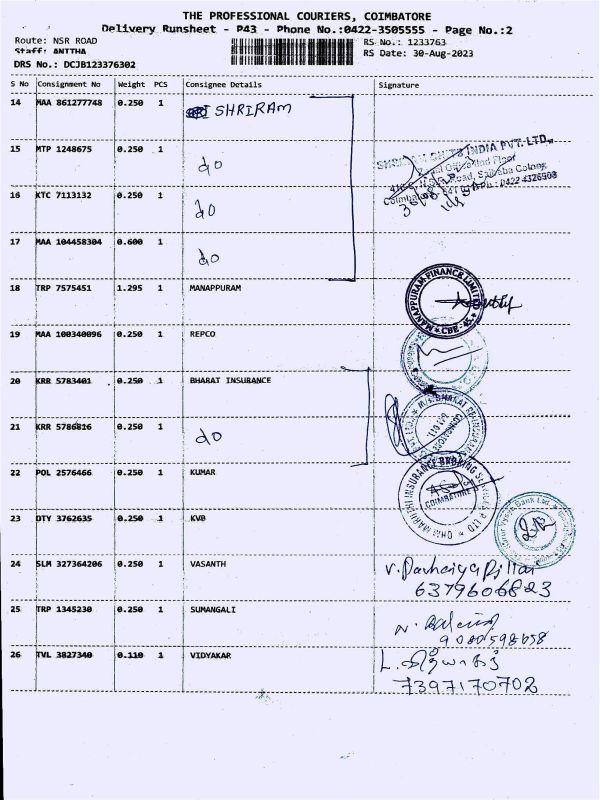 THE PROFESSIONAL COURIERS, COIMBATORE
Delivery Runsheet - P43 - Phone No.:0422-3505555 - Page No.:2
Route: NSR ROAD RS No.: 1233763
Staff: ANITHA RS Date: 30-Aug-2023
DRS No.: DCJB123376302
S No Consignment No Weight PCS Consignee Details Signature
14 MAA 861277748 0.250 1 SHRIRAM
15 MTP 1248675 0.250 1 do
INDIA PVT. LTD.,
Road, Saibaba Colony,
16 KTC 7113132 0.250 1 do
0422 4326908
17 MAA 104458304 0.600 1 do
18 TRP 7575451 1.295 1 MANAPPURAM
MANAPPURAM FINANCE LIMITED
CBE-45
19 MAA 100340096 0.250 1 REPCO
20 KRR 5783401 0.250 1 BHARAT INSURANCE
21 KRR 5786816 0.250 1 do
22 POL 2576466 0.250 1 KUMAR
INSURANCE BROKING
COIMBATORE
23 OTY 3762635 0.250 1 KVB
Vysya Bank Ltd.
24 SLM 327364206 0.250 1 VASANTH
6379606823
25 TRP 1345230 0.250 1 SUMANGALI
26 TVL 3827340 0.110 1 VIDYAKAR L. வித்யாகர்
7397170702